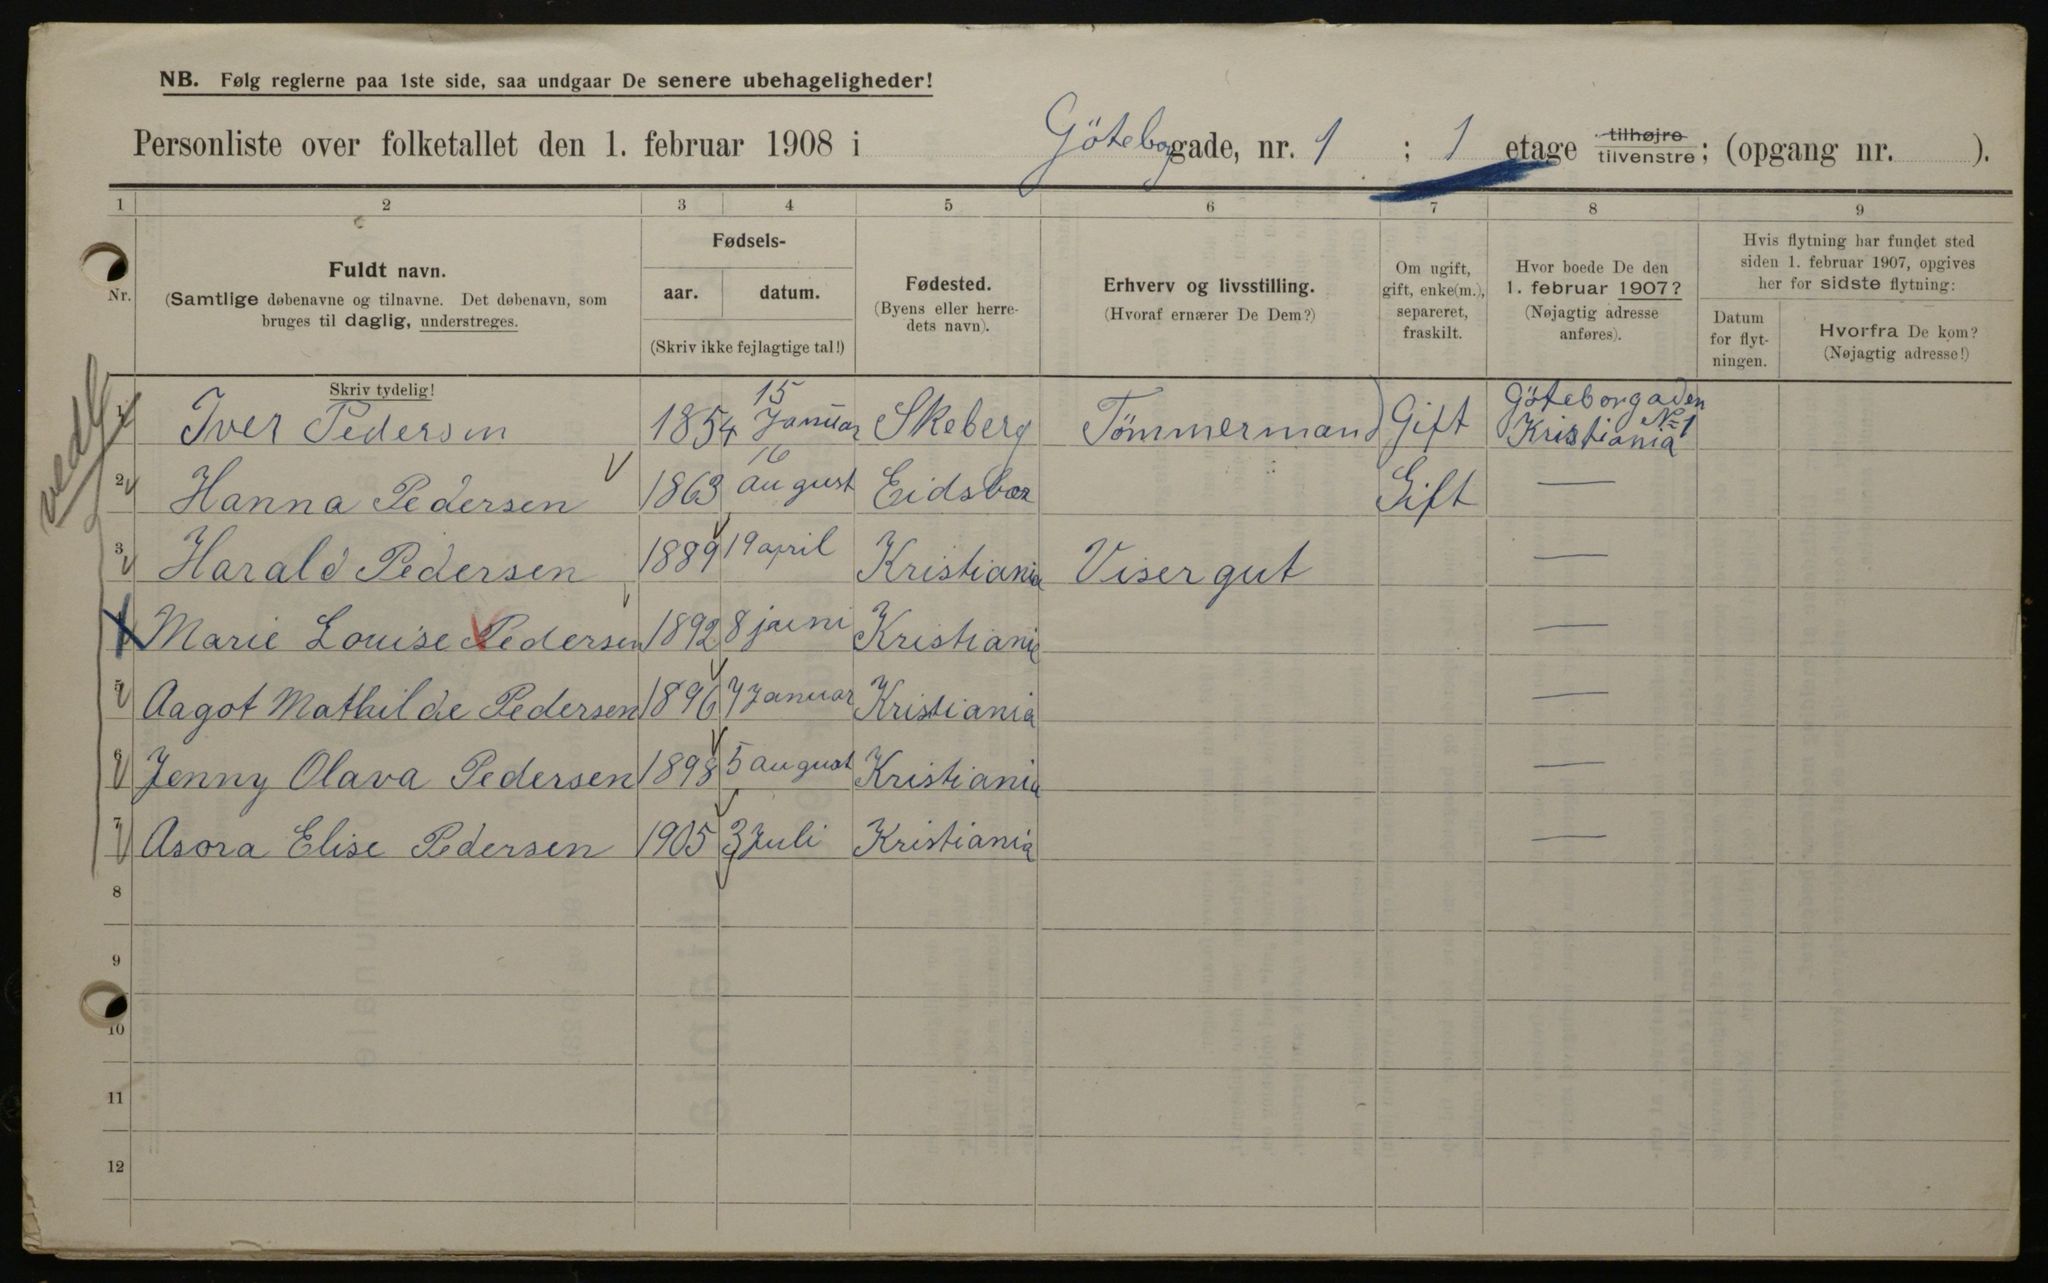 NB. Følg reglerne paa 1ste side, saa undgaar De senere ubehageligheder!
Personliste over folketallet den 1. februar 1908 i Götebogade, nr. 1 ; 1 etage tilhøjre tilvenstre; (opgang nr. ).
1 2 3 4 5 6 7 8 9
Nr.
Fuldt navn.
(Samtlige døbenavne og tilnavne. Det døbenavn, som
bruges til daglig, understreges.
Skriv tydelig!
Fødsels-
aar. datum.
(Skriv ikke fejlagtige tal!)
Fødested.
(Byens eller herre-
dets navn).
Erhverv og livsstilling.
(Hvoraf ernærer De Dem?)
Om ugift,
gift, enke(m.),
separeret,
fraskilt.
Hvor boede De den
1. februar 1907?
(Nøjagtig adresse
anføres).
Hvis flytning har fundet sted
siden 1. februar 1907, opgives
her for sidste flytning:
Datum
for flyt-
ningen.
Hvorfra De kom?
(Nøjagtig adresse!)
vedl
1 Iver Pedersen 1854 15 Januar Skeberg Tömmermand Gift Göteborgaden No 1 Kristiania
2 Hanna Pedersen 1863 16 august Eidsber Gift —
3 Harald Pedersen 1889 19 april Kristiania Visergut —
Marie Louise Pedersen 1892 8 juni Kristiania —
5 Aagot Mathilde Pedersen 1896 7 Januar Kristiania —
6 Jenny Olava Pedersen 1898 5 august Kristiania —
7 Asora Elise Pedersen 1905 3 Juli Kristiania —
8
9
10
11
12